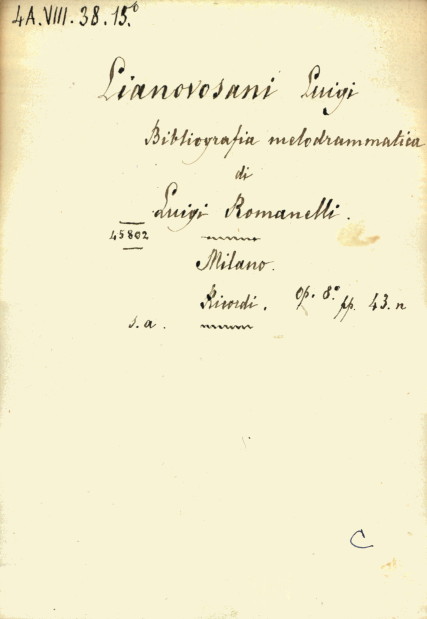 4A.VIII.38.15.6
Lianovosani Luigi
Bibliografia melodrammatica
di
Luigi Romanelli.
45802
Milano.
Ricordi. op. 8.o pp. 43. n
s. a.
C